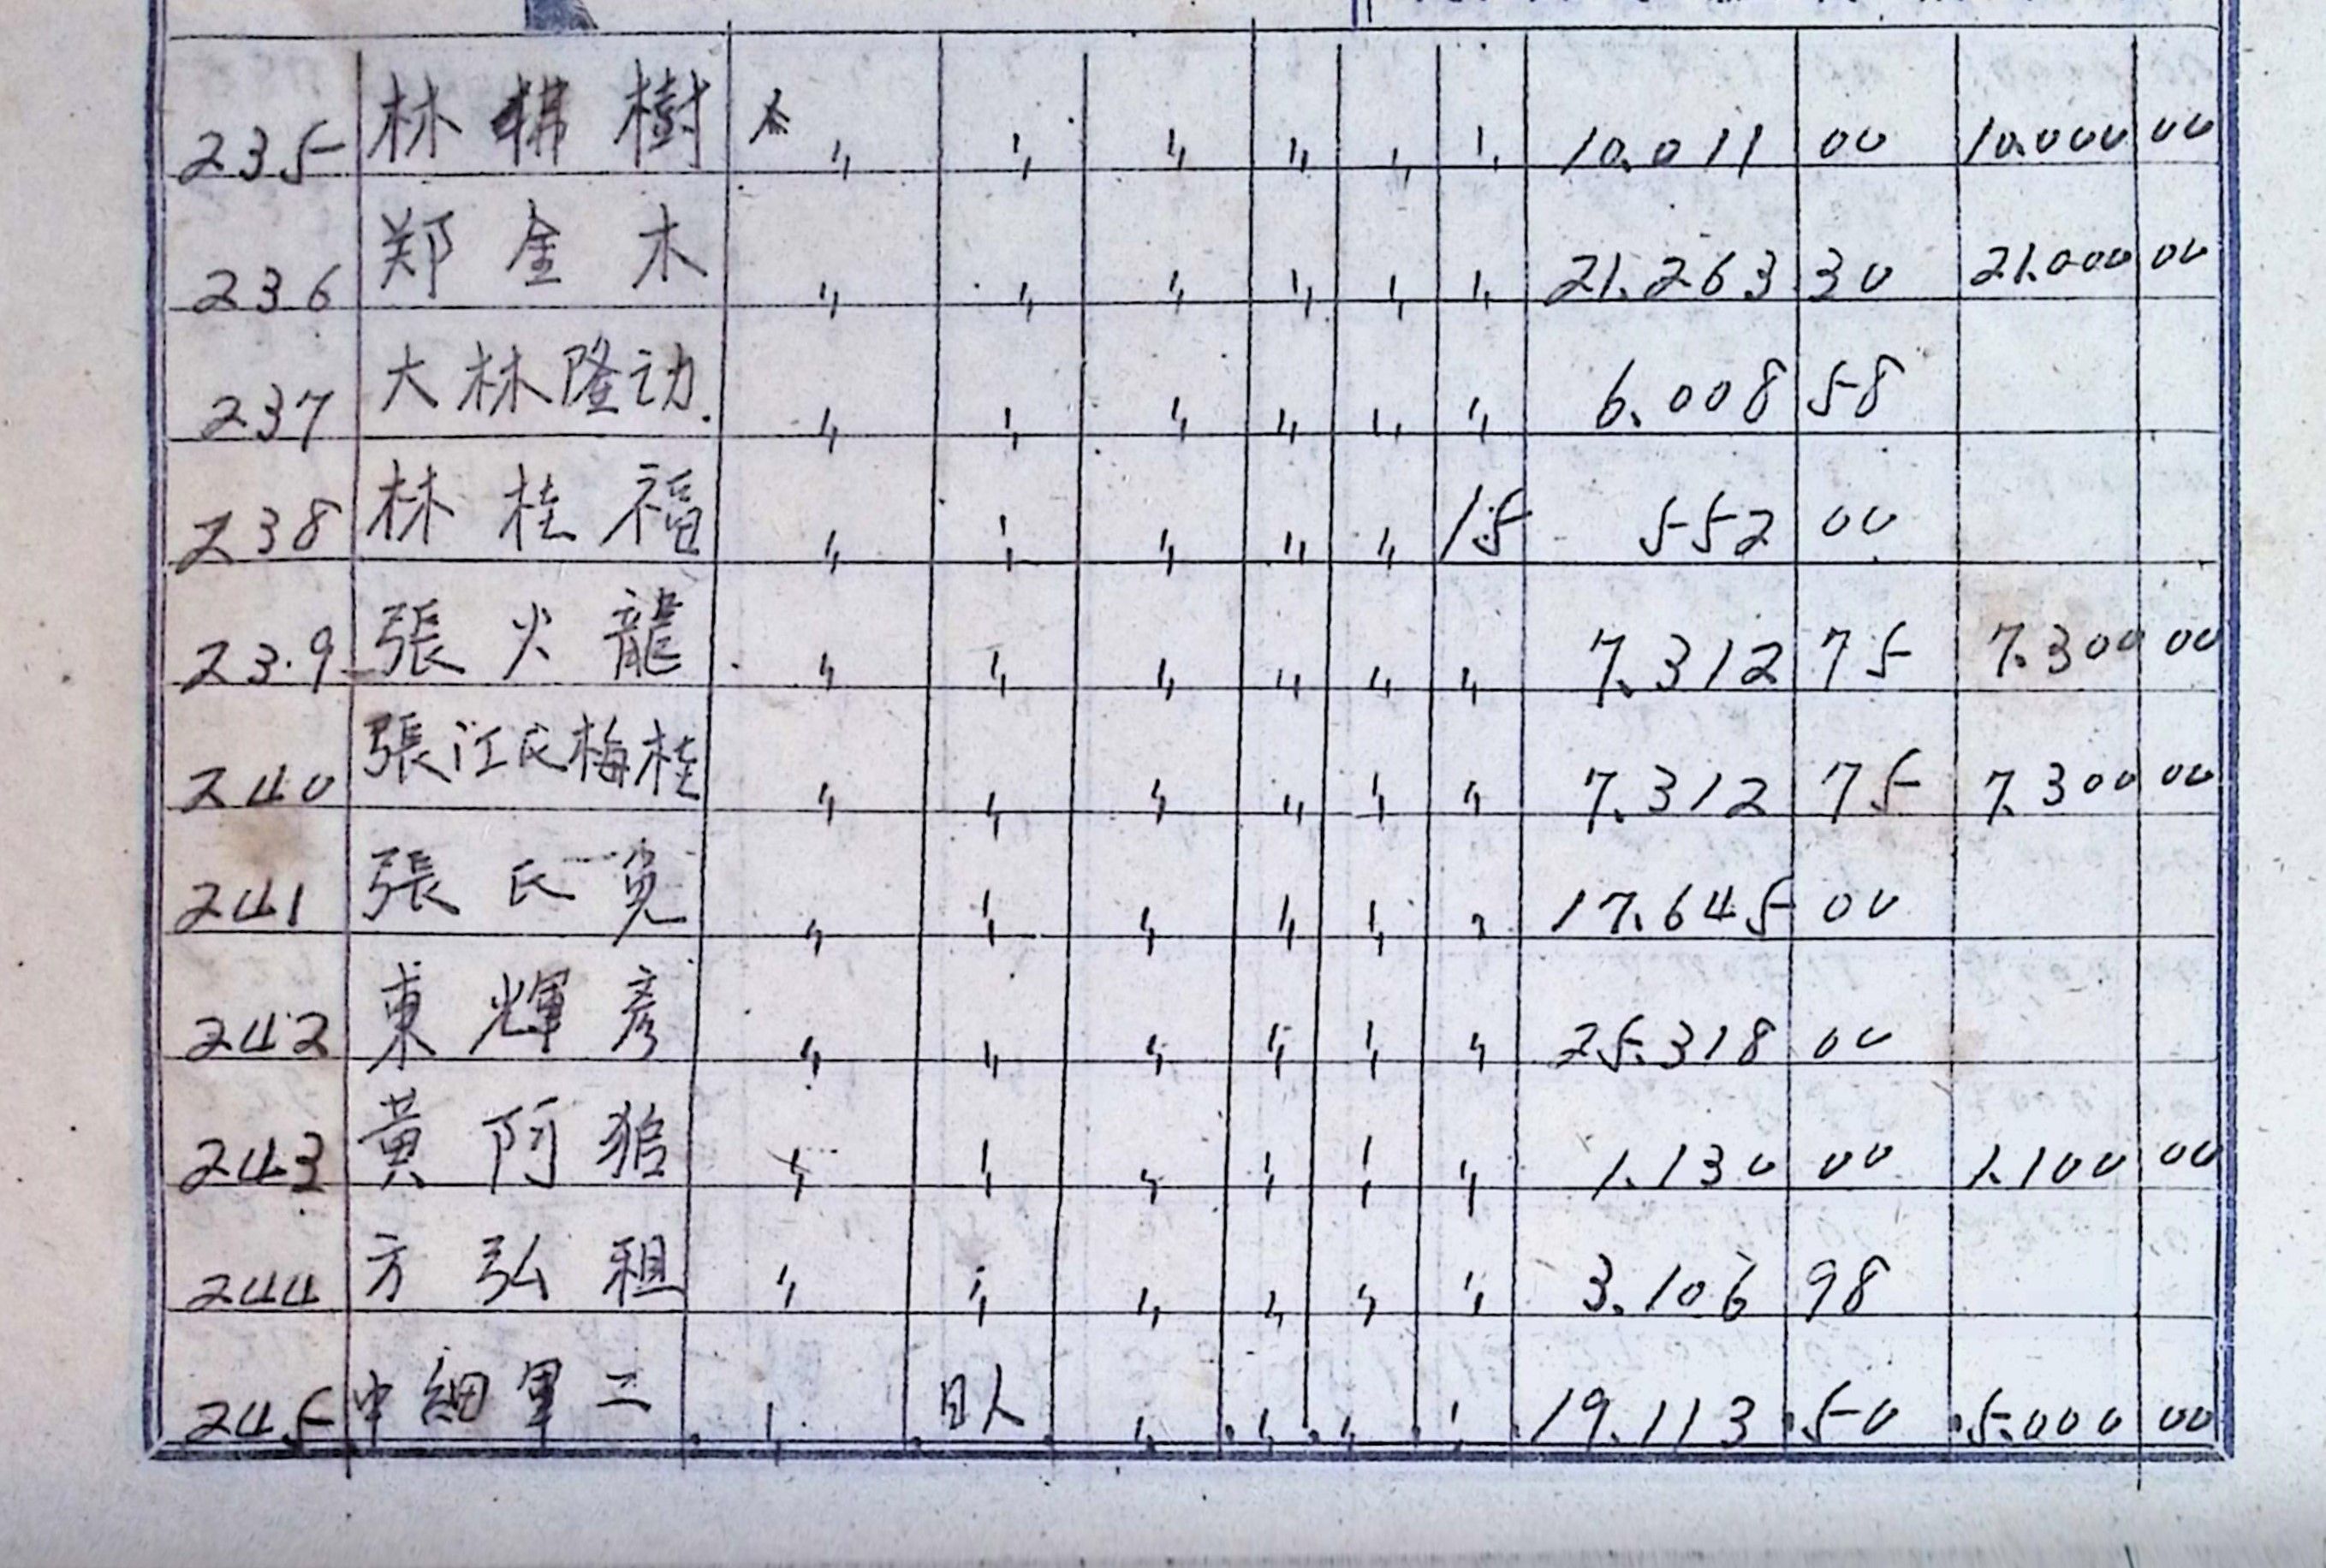 235 林 樹 〃 〃 〃 〃 〃 〃 10.011 00 10.000 00
236 郑金木 〃 〃 〃 〃 〃 〃 21.263 30 21.000 00
237 大林隆 〃 〃 〃 〃 〃 〃 6.008 58
238 林桂福 〃 〃 〃 〃 〃 15 552 00
239 張火龍 〃 〃 〃 〃 〃 〃 7.312 75 7.300 00
240 張江氏梅桂 〃 〃 〃 〃 〃 〃 7.312 75 7.300 00
241 張氏 〃 〃 〃 〃 〃 〃 17.645 00
242 東輝彥 〃 〃 〃 〃 〃 〃 25.318 00
243 黄阿 〃 〃 〃 〃 〃 〃 1.130 00 1.100 00
244 方弘租 〃 〃 〃 〃 〃 〃 3.106 98
245 中細軍二 〃 日人 〃 〃 〃 〃 19.113 50 5.000 00